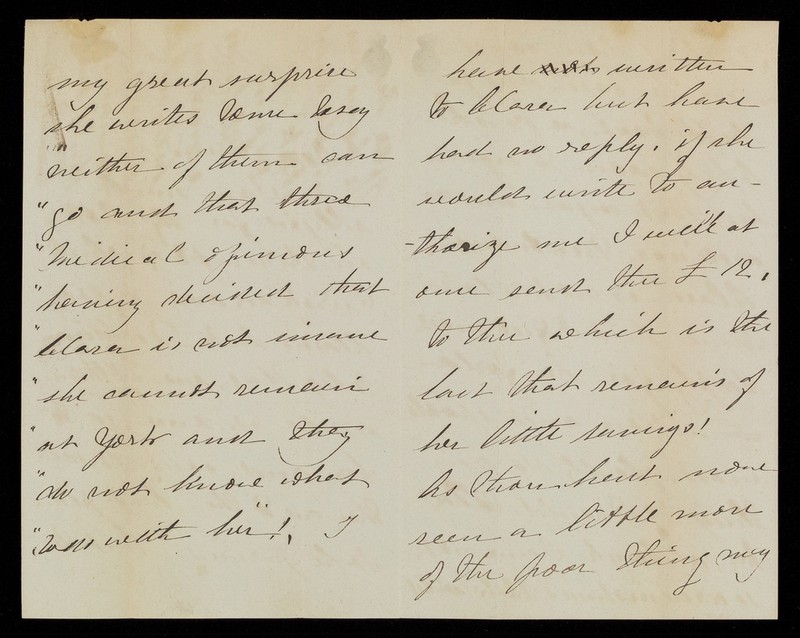 my great surprise
she writes to me to say
"neither of them can
"go and that three
"Medical opinions
"having decided that
"Clara is not insane
"she cannot remain
"at York and they
"do not know what
"to do with her"! I
have written
to Clara but have
had no reply. if she
would write to au-
-thorize me I will at
once send thee £12,
to thee which is the
last that remains of
her little savings!
As thou hast now
seen a little more
of the poor thing may